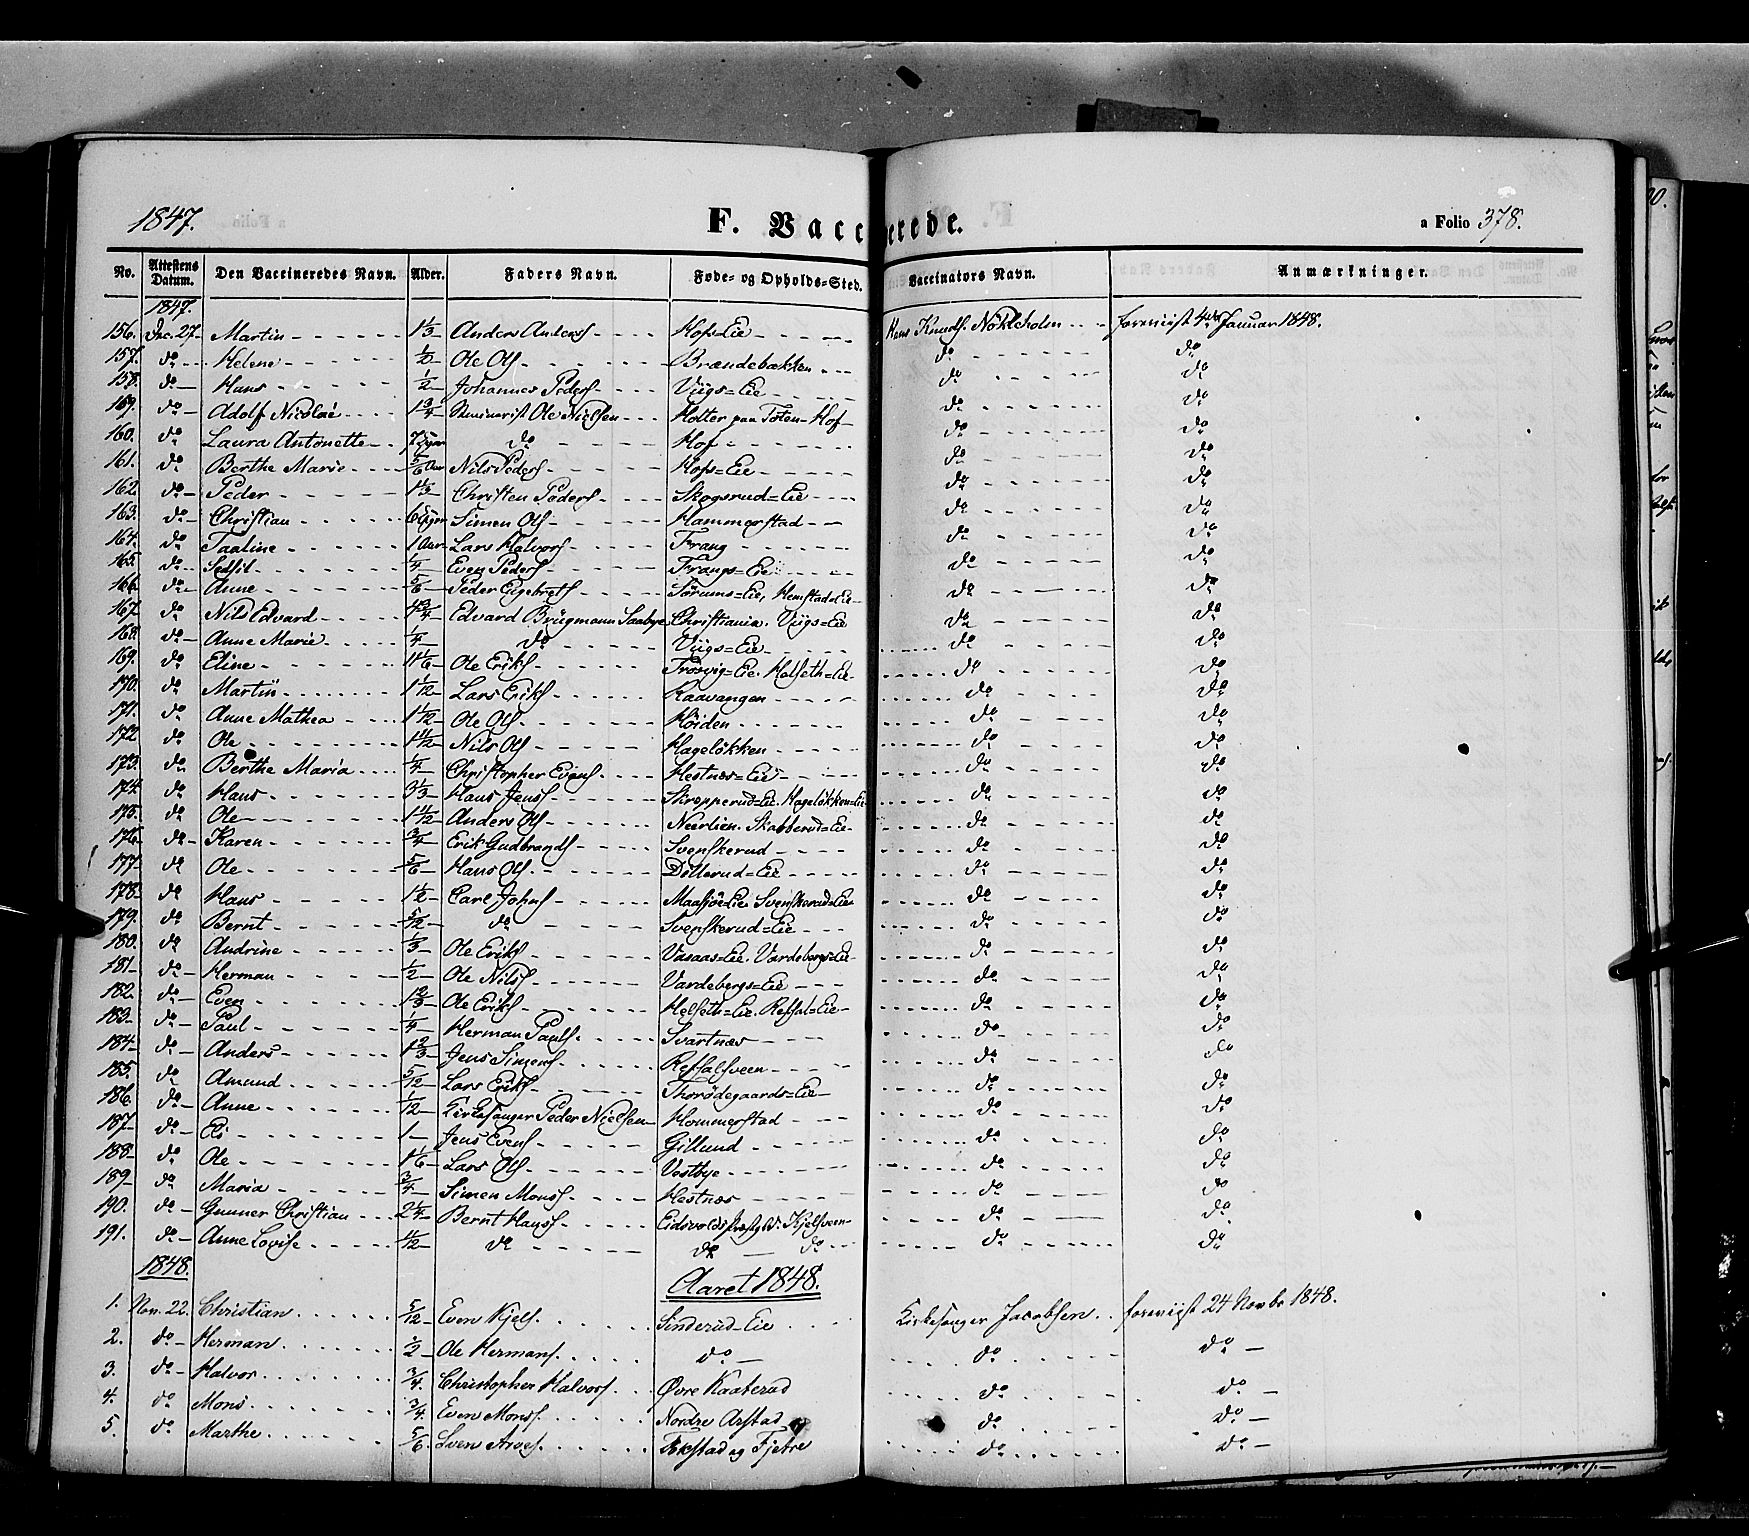 1847. F. Vaccinerede. a Folio 378.
No. Attestens Datum. Den Vaccineredes Navn. Alder. Faders Navn. Føde- og Opholds-Sted. Vaccinators Navn. Anmærkninger.
1847.
156. Dec. 27 Martin 1 1/3 Anders Anders. Hofs=Eie Hans Knuds. Nökleholm foreviist 4de Januar 1848.
157. do Helene 1/2 Ole Ols. Brændebækken do do
158. do Hans 1/2 Johannes Peders. Viigs=Eie do do
159. do Adolf Nicolai 1 3/4 Seminarist Ole Nielsen Holter paa Toten - Hof do do
160. do Laura Antonette do Hof do do
161. do Berthe Marie 5/6 Aar Nils Peders. Hofs=Eie do do
162. do Peder 1 1/3 Christen Peders. Skogsrud=Eie do do
163. do Christian Simen Ols. Hammerstad do do
164. do Taaline 1 Aar Lars Halvors. Frang do do
165. do Sidsil 1/4 Even Peders. Frangs=Eie do do
166. do Anne 5/6 Peder Eigebrets. Sörums=Eie, Hemstad=Eie do do
167. do Nils Edvard 4 3/4 Edvard Brügmann Saabye Christiania. Viigs=Eie do do
168. do Anne Marie 1/4 do Viigs=Eie do do
169. do Eline 1 1/6 Ole Eriks. Frosvig=Eie. Helseth=Eie do do
170. do Martin 1 1/12 Lars Eriks. Raavangen do do
171. do Anne Mathea 1 1/12 Ole Ols. Höiden do do
172 do Ole 1 11/12 Nils Ols. Hagelökken do do
173. do Berthe Maria 1/4 Christopher Evens. Hestnæs=Eie do do
174. do Hans 3 1/3 Hans Jens. Skrepperud=Eie. Hagelökken=Eie do do
175. do Ole 1 1/12 Anders Ols. Neerlien. Skabberud=Eie do do
176. do Karen 3/4 Erik Gudbrands. Svenskerud do do
177 do Ole 5/6 Hans Ols. Döllerud=Eie do do
178. do Hans 1 1/2 Carl Johns. Maasjöe=Eie Svenskerud=Eie do do
179. do Bernt 5/12 do Svenskerud=Eie do do
180. do Andrine 1/3 Ole Eriks. Vasaas=Eie. Vardebergs=Eie do do
181 do Herman 1/2 Ole Nils. Vardebergs=Eie do do
182. do Even 1 2/3 Ole Eriks. Helseth=Eie. Refsal=Eie do do
183. do Paul 1/4 Herman Pauls. Svartnæs do do
184 do Anders 1 2/3 Jens Simens. Refsalsveen do do
185. do Amund 5/12 Lars Eriks. Thorödegaards=Eie do do
186. do Anne 1/12 Kirkesanger Peder Nielsen Hommerstad do do
187 do Eli 1 Jens Evens. Gillund do do
188. do Ole 1 1/6 Lars Ols. Vestbye do do
189 do Maria 3/4 Simen Mons. Hestnæs do do
190. do Gunner Christian 2 1/4 Bernt Hans. Eidsvolds Præstgld. Kjelsveen do do
191. do Anne Lovise do do do do do
1848. Aaret 1848.
1. Nov. 22. Christian 5/12 Even Kjels. Sinderud=Eie Kirkesanger Jacobsen foreviist 24 Novbr 1848.
2. do Herman 1/2 Ole Hermans. do do do
3. do Halvor 3/4 Christopher Halvors. Øvre Kaaterud do do
4. do Mons 3/4 Even Mons. Nordre Arstad do do
5. do Marthe 5/6 Sven Arves. Ekstad og Fjetre do do